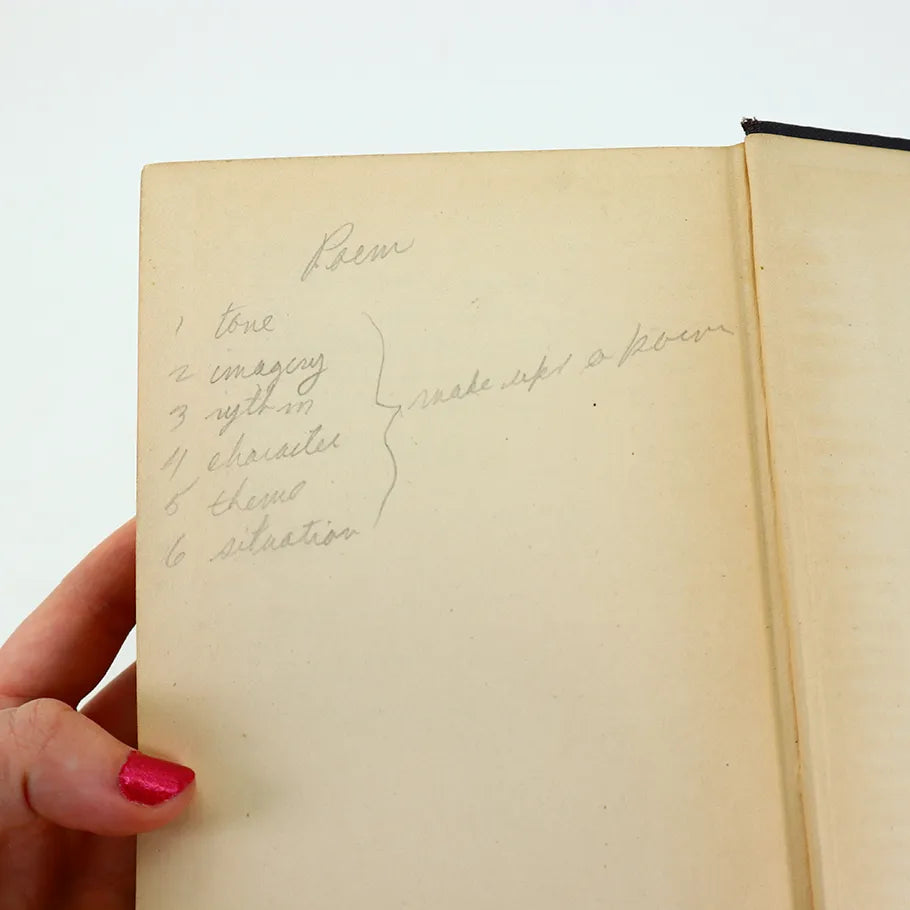 Poem
1 tone
2 imagery
3 rythm
4 character
5 theme
6 situation
make ups a poem